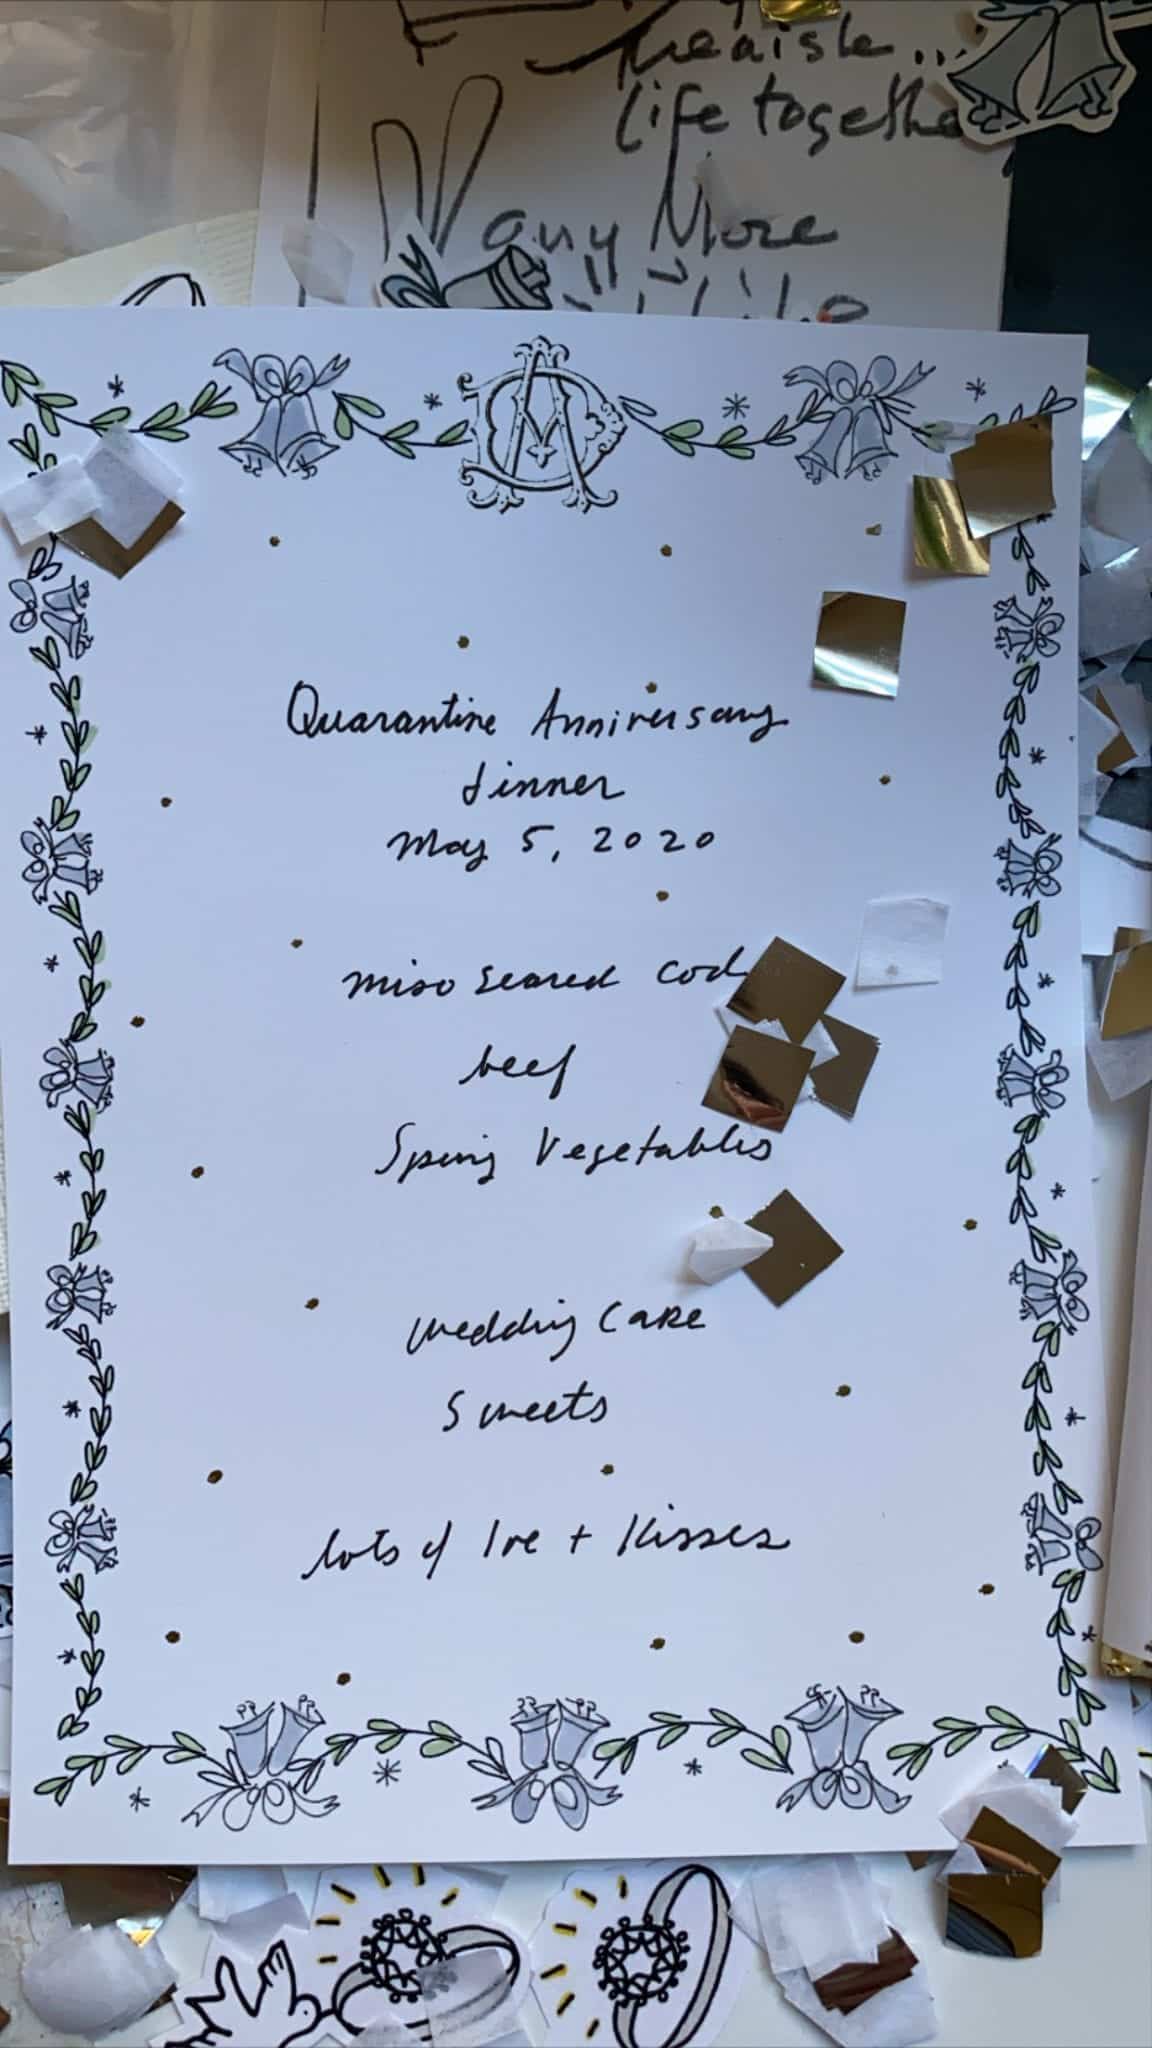 life together
Many More
Quarantine Anniversary
dinner
May 5, 2020
miso seared cod
beef
Spring Vegetables
wedding cake
Sweets
lots of love + kisses